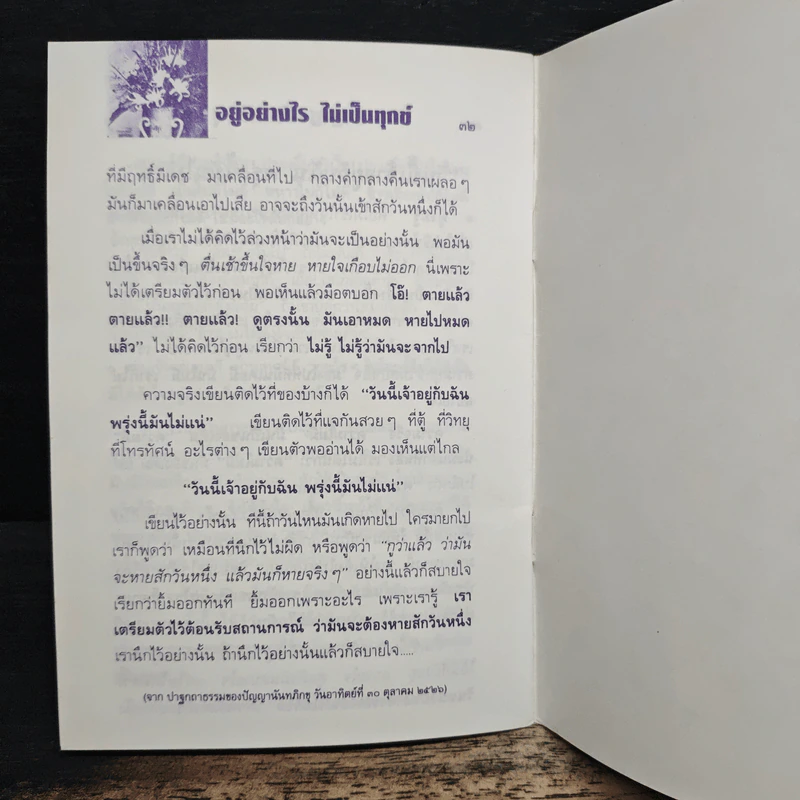 อยู่อย่างไร ไม่เป็นทุกข์
๓๒
ที่มีฤทธิ์มีเดช มาเคลื่อนที่ไป กลางค่ำกลางคืนเราเผลอๆ
มันก็มาเคลื่อนเอาไปเสีย อาจจะถึงวันนั้นเข้าสักวันหนึ่งก็ได้
เมื่อเราไม่ได้คิดไว้ล่วงหน้าว่ามันจะเป็นอย่างนั้น พอมัน
เป็นขึ้นจริงๆ ตื่นเช้าขึ้นใจหาย หายใจเกือบไม่ออก นี่เพราะ
ไม่ได้เตรียมตัวไว้ก่อน พอเห็นแล้วมือตบอก โอ๊! ตายแล้ว
ตายแล้ว!! ตายแล้ว! ดูตรงนั้น มันเอาหมด หายไปหมด
แล้ว” ไม่ได้คิดไว้ก่อน เรียกว่า ไม่รู้ ไม่รู้ว่ามันจะจากไป
ความจริงเขียนติดไว้ที่ของบ้างก็ได้ “วันนี้เจ้าอยู่กับฉัน
พรุ่งนี้มันไม่แน่” เขียนติดไว้ที่แจกันสวยๆ ที่ตู้ ที่วิทยุ
ที่โทรทัศน์ อะไรต่างๆ เขียนตัวพออ่านได้ มองเห็นแต่ไกล
“วันนี้เจ้าอยู่กับฉัน พรุ่งนี้มันไม่แน่”
เขียนไว้อย่างนั้น ทีนี้ถ้าวันไหนมันเกิดหายไป ใครมายกไป
เราก็พูดว่า เหมือนที่นึกไว้ไม่ผิด หรือพูดว่า “กูว่าแล้ว ว่ามัน
จะหายสักวันหนึ่ง แล้วมันก็หายจริงๆ” อย่างนี้แล้วก็สบายใจ
เรียกว่ายิ้มออกทันที ยิ้มออกเพราะอะไร เพราะเรารู้ เรา
เตรียมตัวไว้ต้อนรับสถานการณ์ ว่ามันจะต้องหายสักวันหนึ่ง
เรานึกไว้อย่างนั้น ถ้านึกไว้อย่างนั้นแล้วก็สบายใจ.....
(จาก ปาฐกถาธรรมของปัญญานันทภิกขุ วันอาทิตย์ที่ ๓๐ ตุลาคม ๒๕๒๖)